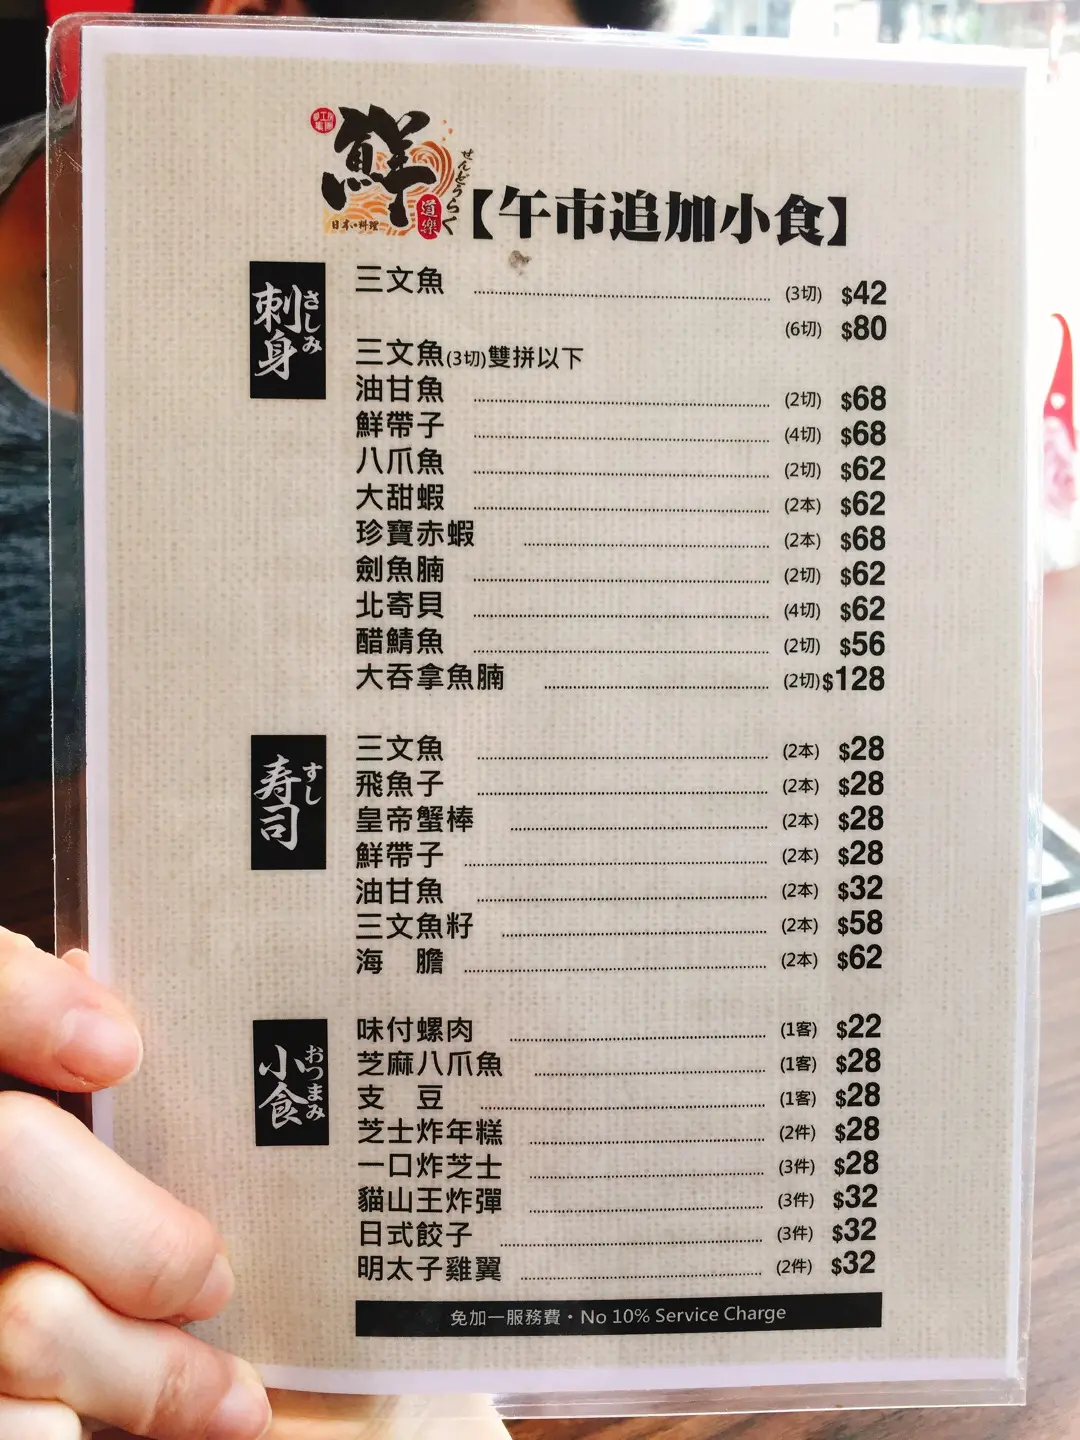 鮮
道樂
せんどうらく
日本の料理
【午市追加小食】
刺身
さしみ
三文魚 (3切) $42
(6切) $80
三文魚(3切)雙拼以下
油甘魚 (2切) $68
鮮帶子 (4切) $68
八爪魚 (2切) $62
大甜蝦 (2本) $62
珍寶赤蝦 (2本) $68
劍魚腩 (2切) $62
北寄貝 (4切) $62
醋鯖魚 (2切) $56
大吞拿魚腩 (2切) $128
寿司
すし
三文魚 (2本) $28
飛魚子 (2本) $28
皇帝蟹棒 (2本) $28
鮮帶子 (2本) $28
油甘魚 (2本) $32
三文魚籽 (2本) $58
海 膽 (2本) $62
小食
おつまみ
味付螺肉 (1客) $22
芝麻八爪魚 (1客) $28
支 豆 (1客) $28
芝士炸年糕 (2件) $28
一口炸芝士 (3件) $28
貓山王炸彈 (3件) $32
日式餃子 (3件) $32
明太子雞翼 (2件) $32
免加一服務費・No 10% Service Charge